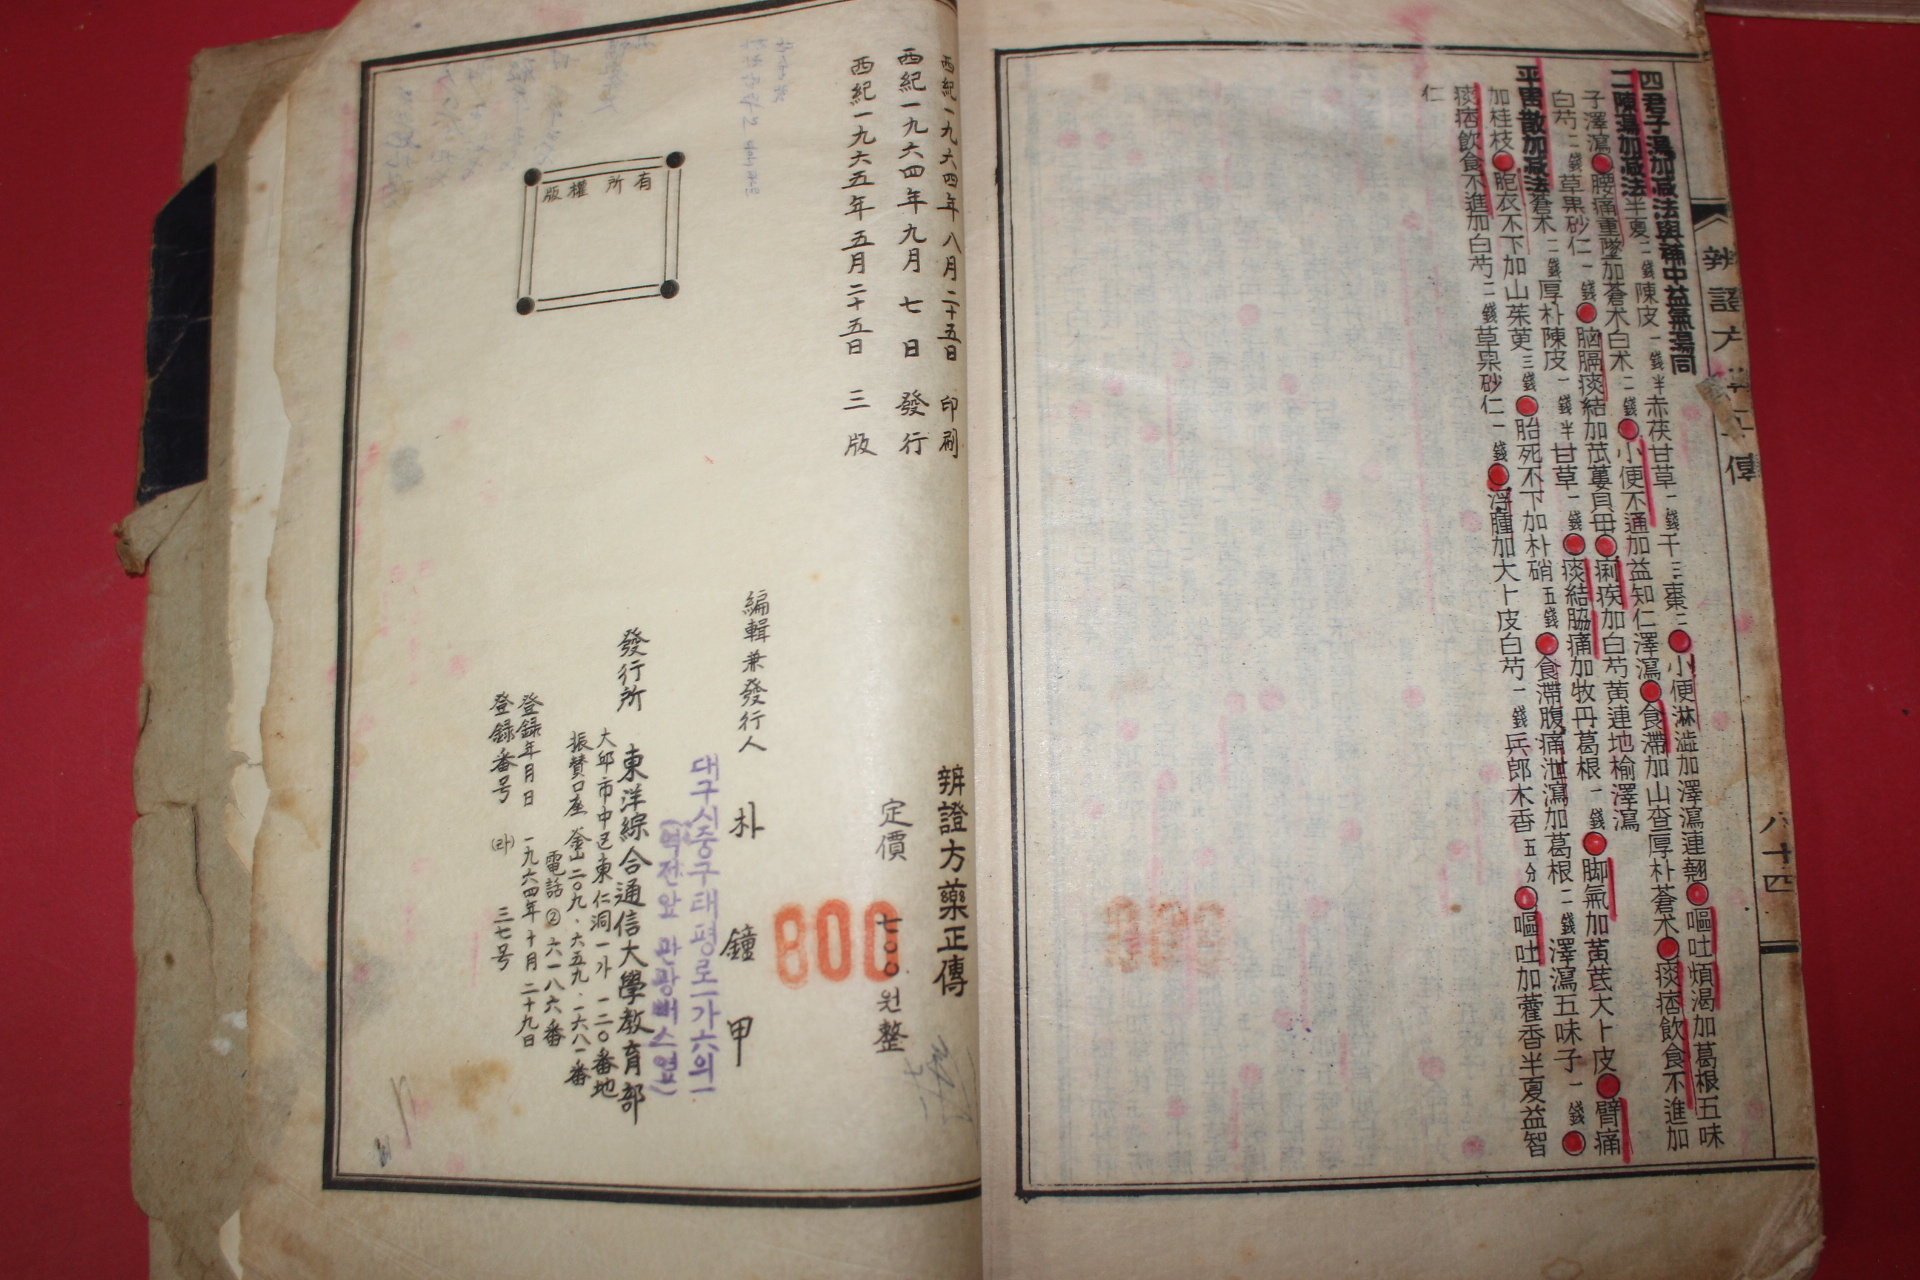 四君子湯加減法與補中益氣湯同
二陳湯加減法半夏二錢陳皮一錢半赤茯甘草一錢干三棗二●小便淋澁加澤瀉連翹●嘔吐煩渴加葛根五味
子澤瀉●腰痛重墜加蒼朮白朮二錢●小便不通加益知仁澤瀉●食滯加山査厚朴蒼朮●痰痞飲食不進加
白芍二錢草果砂仁一錢●脳膈痰結加苽蔞貝母●痢疾加白芍黄連地榆澤瀉
平胃散加减法蒼朮二錢厚朴陳皮一錢半甘草一錢●痰結脇痛加牧丹葛根一錢●脚氣加黃芪大卜皮●臂痛
加桂枝●胞衣不下加山茱萸三錢●胎死不下加朴硝五錢●食滯腹痛泄瀉加葛根二錢澤瀉五味子一錢●
痰痞飲食不進加白芍二錢草果砂仁一錢●浮腫加大卜皮白芍一錢兵郎木香五分●嘔吐加藿香半夏益智
仁
辨證方藥正傳
八十四
西紀一九六四年八月二十五日 印刷
西紀一九六四年九月七日 發行
西紀一九六五年五月二十五日 三版
版權所有
辨證方藥正傳
定價 七〇〇원整
800
編輯兼發行人 朴鐘甲
대구시중구태평로一가六의一
(역전앞 관광뻐스옆)
發行所 東洋綜合通信大學教育部
大邱市中区東仁洞一가 一二〇番地
振賛口座 釜山二〇九·六五九·一六八一番
電話②六一八六番
登録年月日 一九六四年十月二十九日
登録番号 ㈑ 三七号